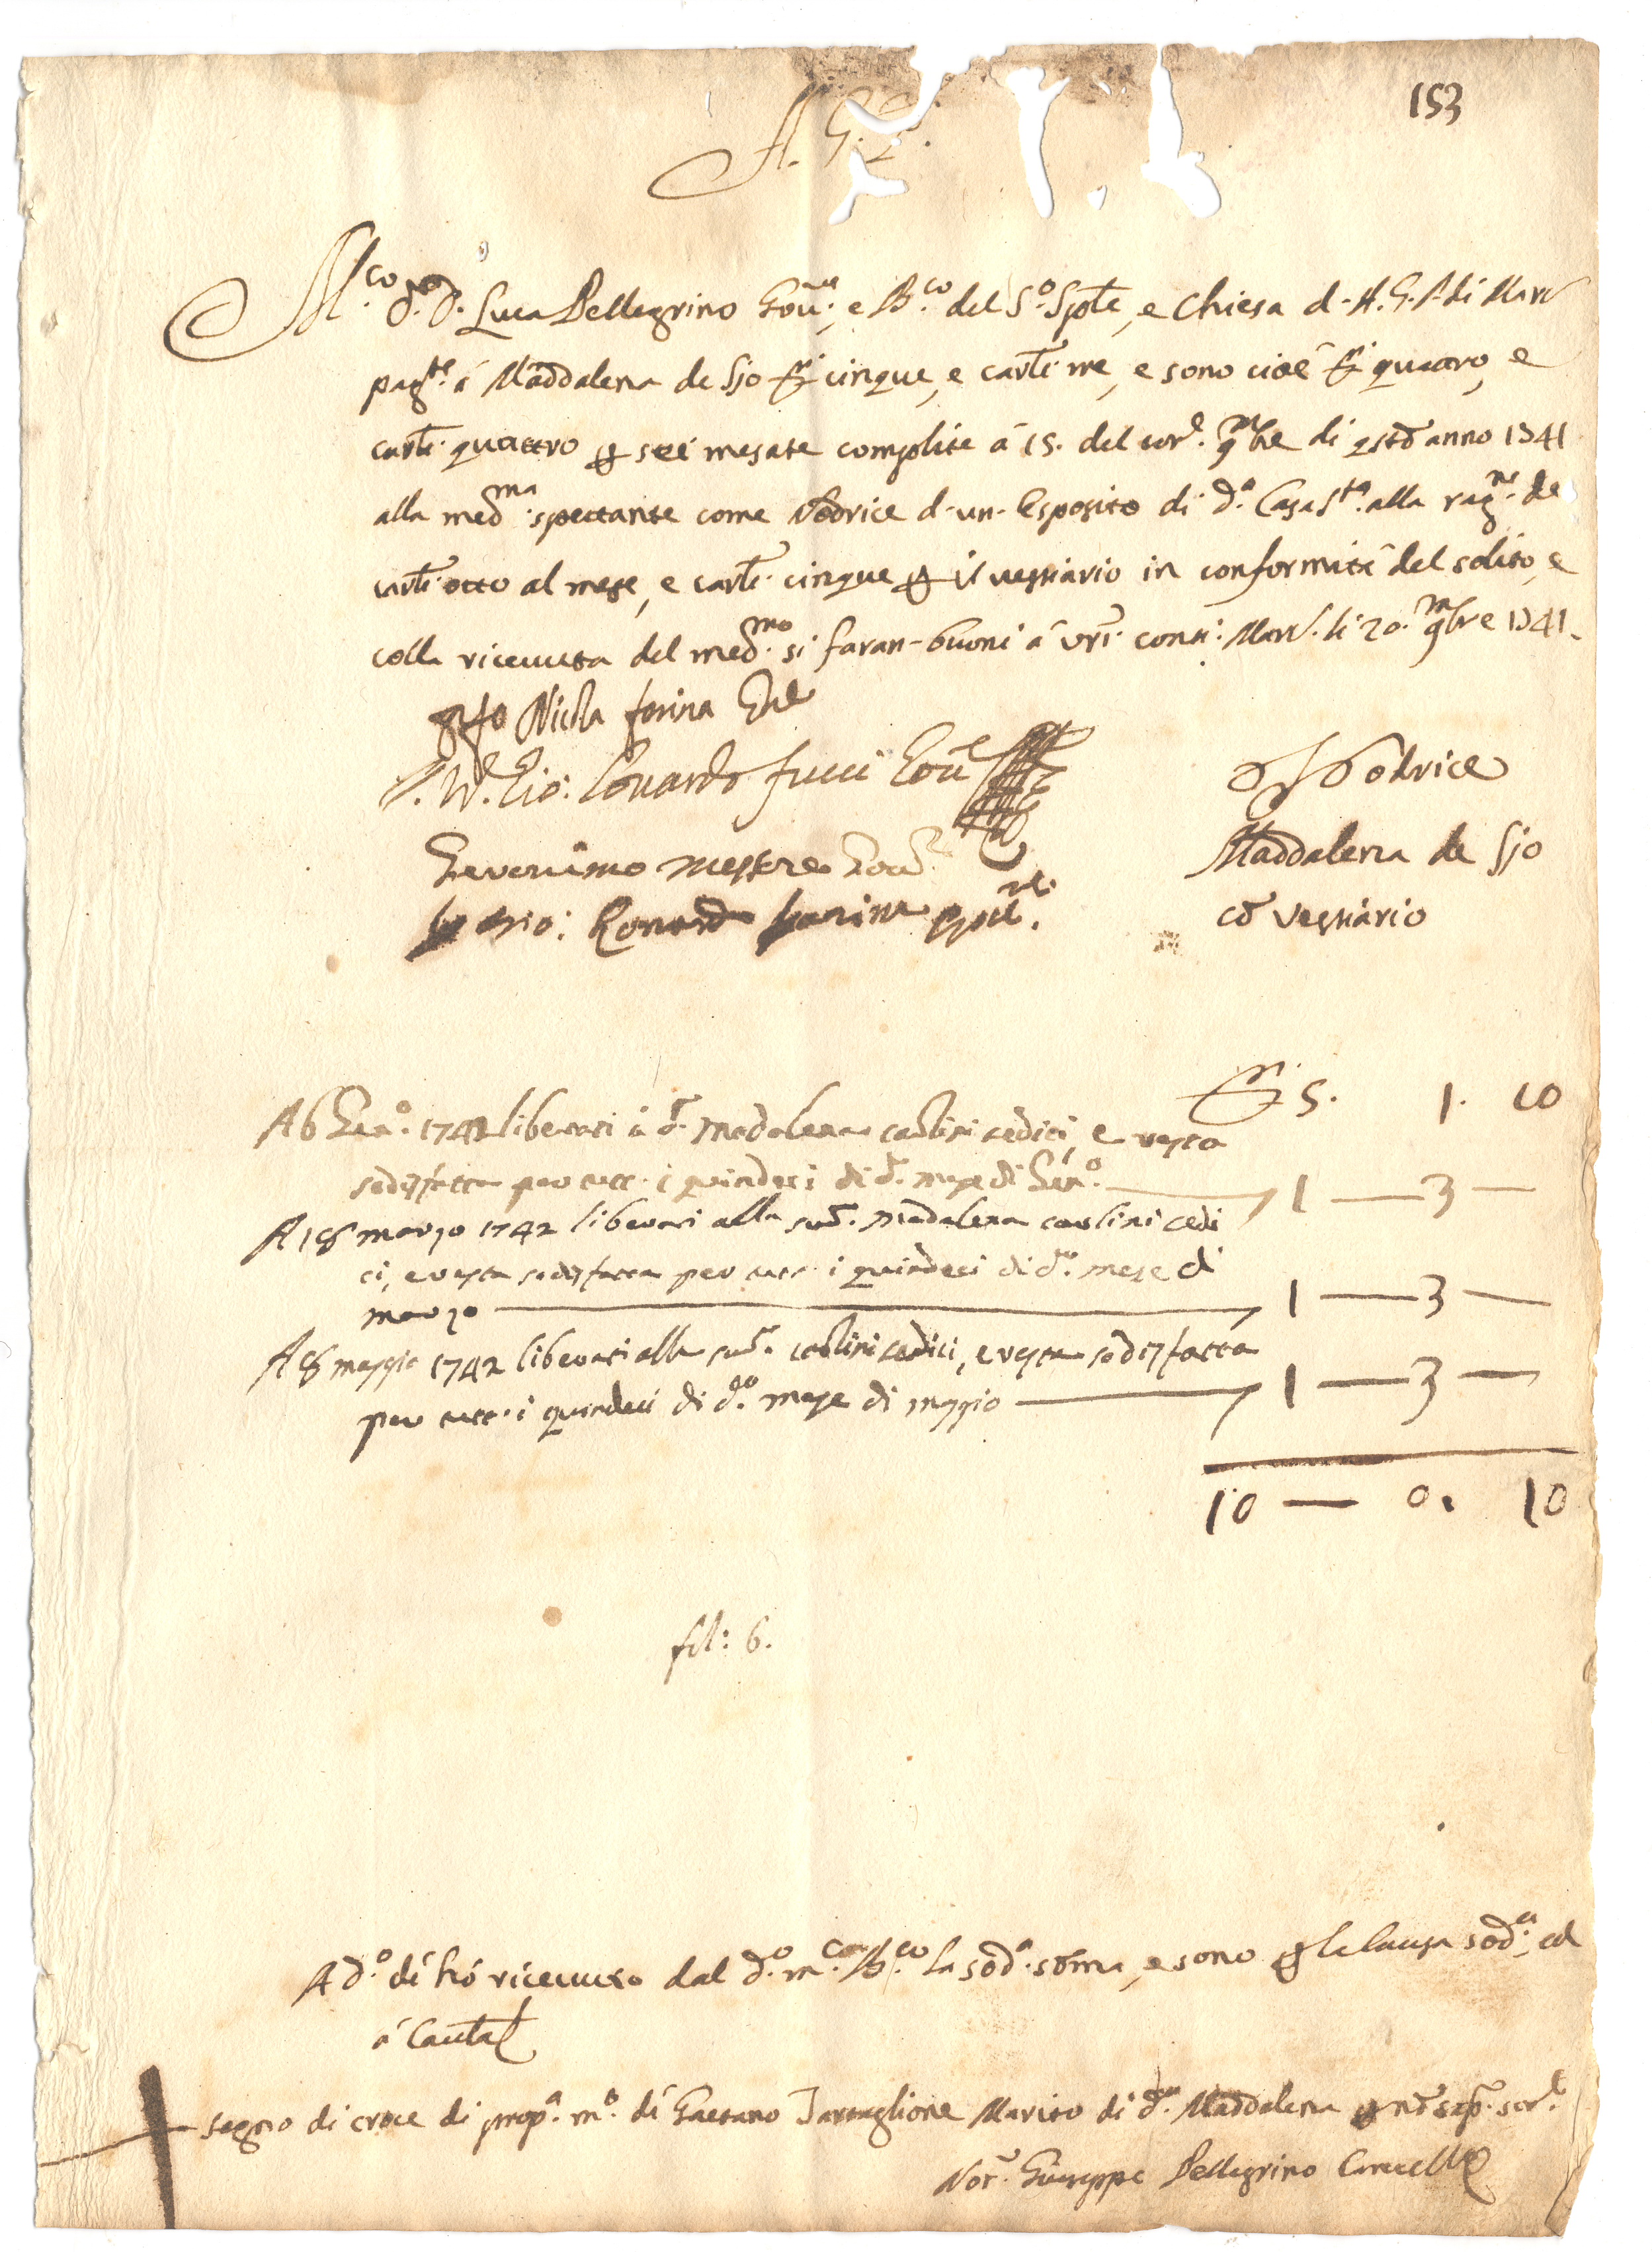 153
A. G. P.
M.co D. D. Luca Pellegrino Gov.re, e B.co del S.o Sple, e Chiesa d. A. G. P. di Marc
pag.te á Maddalena de Sjo D.i cinque, e carli tre, e sono cioè D.i quattro, e
carli quattro p sei mesate complite á 15. del corr.e 9mbre di qsto anno 1741
alla med.ma spettante come Nodrice d. un. Esposito di d.a Casa S.ta alla rag.ne de
carli otto al mese, e carli cinque p il vestiario in conformità del solito, e
colla ricevuta del med.mo si faran-buoni á vri conti. Marc. li 20. 9mbre 1741.
Nicola farina
Gio: Lonardo fucci Gov.e
Geronimo mestre Gov.
Gio: Lonardo
Nodrice
Maddalena de Sjo
co vestiario
D.i 5. 1. 10
A 6 Gen.o 1742 liberati á d. Madalena carlini sedici, e resta
sodisfatta per tutt. i quindeci di d. mese di Gen.o 1 — 3 —
A 18 marzo 1742 liberati alla sud. Madalena carlini sedi
ci, e resta sodisfatta per tutt. i quindeci di d.o mese di
marzo 1 — 3 —
A 8 maggio 1742 liberati alla sud. carlini sedici, e resta sodisfatta
per tutt. i quindeci di d.o mese di maggio 1 — 3 —
10 — 0. 10
fol: 6.
A d.o dí hó ricevuto dal d.o m.co B.co la sod.a soma, e sono p la causa sod.a, ed
á Cautel
segno di croce di prop.a m.o di Gaetano Tartaglione Marito di d.a Maddalena p no sap. scr.e
Not. Giuseppe Pellegrino